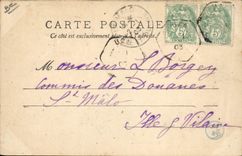 CARTE POSTALE
Ce côté est exclusivement
5
5
03
Monsieur L Borgey
Commis des Douanes
St Malo
Ille & Vilaine